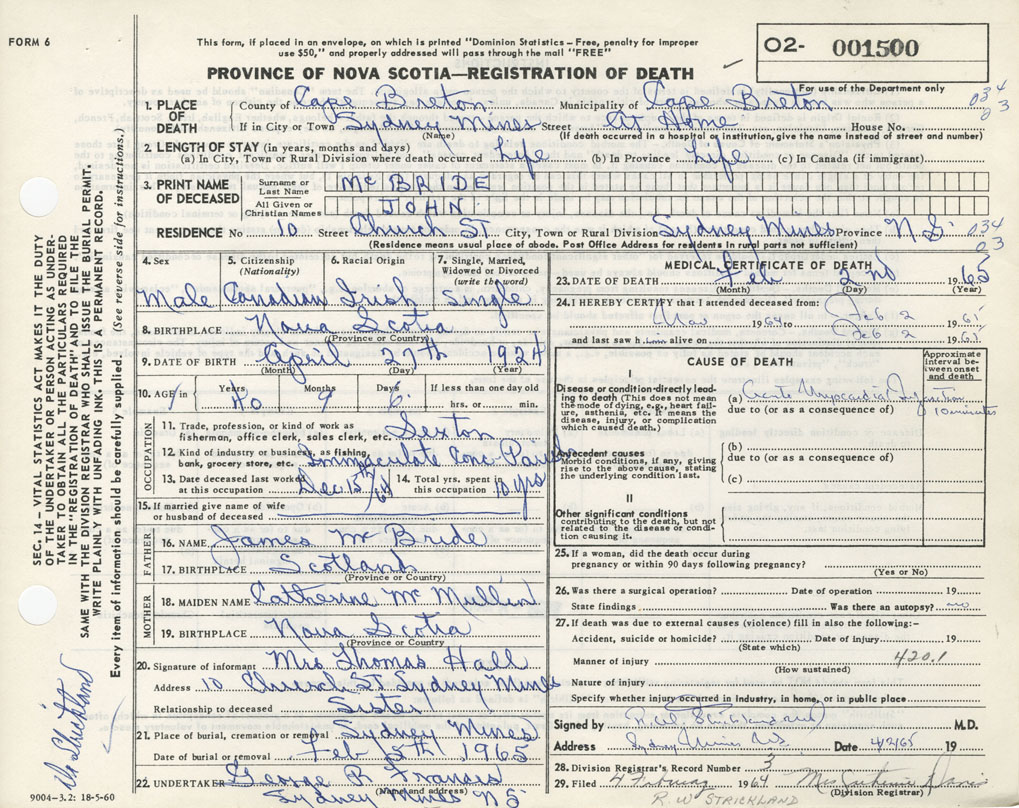 FORM 6
This form, if placed in an envelope, on which is printed "Dominion Statistics – Free, penalty for improper
use $50," and properly addressed will pass through the mail "FREE"
O2- 001500
For use of the Department only
PROVINCE OF NOVA SCOTIA—REGISTRATION OF DEATH
034
03
1. PLACE OF DEATH { County of Cape Breton Municipality of Cape Breton
If in City or Town Sydney Mines Street At Home House No.
(Name) (If death occurred in a hospital or institution, give the name instead of street and number)
2. LENGTH OF STAY (in years, months and days)
(a) In City, Town or Rural Division where death occurred Life (b) In Province Life (c) In Canada (if immigrant)
3. PRINT NAME OF DECEASED { Surname or Last Name McBRIDE
All Given or Christian Names JOHN
RESIDENCE No 10 Street Church ST. City, Town or Rural Division Sydney Mines Province N.S. 034
03
(Residence means usual place of abode. Post Office Address for residents in rural parts not sufficient)
4. Sex 5. Citizenship (Nationality) 6. Racial Origin 7. Single, Married, Widowed or Divorced (write the word)
Male Canadian Irish Single
8. BIRTHPLACE Nova Scotia
(Province or Country)
9. DATE OF BIRTH April 27th 1924
(Month) (Day) (Year)
10. AGE in Years 40 Months 9 Days 6 If less than one day old hrs. or min.
OCCUPATION
11. Trade, profession, or kind of work as fisherman, office clerk, sales clerk, etc. Sexton
12. Kind of industry or business, as fishing, bank, grocery store, etc. Immaculate Conc. Parish
13. Date deceased last worked at this occupation Dec 15th/64 14. Total yrs. spent in this occupation 10 yrs
15. If married give name of wife or husband of deceased
FATHER
16. NAME James McBride
17. BIRTHPLACE Scotland
(Province or Country)
MOTHER
18. MAIDEN NAME Catherine McMullin
19. BIRTHPLACE Nova Scotia
(Province or Country)
20. Signature of informant Mrs Thomas Hall
Address 10 Church ST Sydney Mines
Relationship to deceased Sister
21. Place of burial, cremation or removal Sydney Mines
Date of burial or removal Feb 5th 1965
22. UNDERTAKER George R Francis
(Name and address)
Sydney Mines N.S
MEDICAL CERTIFICATE OF DEATH
23. DATE OF DEATH Feb 2nd 1965
(Month) (Day) (Year)
24. I HEREBY CERTIFY that I attended deceased from:
1964 to Feb 2 19
and last saw h im alive on Feb 2 19
CAUSE OF DEATH
Approximate interval between onset and death
I
Disease or condition directly leading to death (This does not mean the mode of dying, e.g., heart failure, asthenia, etc. It means the disease, injury, or complication which caused death.)
(a) Acute Myocardial Infarction 10 minutes
due to (or as a consequence of)
Antecedent causes
Morbid conditions, if any, giving rise to the above cause, stating the underlying condition last.
(b)
due to (or as a consequence of)
(c)
II
Other significant conditions
contributing to the death, but not related to the disease or condition causing it.
25. If a woman, did the death occur during
pregnancy or within 90 days following pregnancy?
(Yes or No)
26. Was there a surgical operation? Date of operation 19
State findings Was there an autopsy? no
27. If death was due to external causes (violence) fill in also the following:-
Accident, suicide or homicide? Date of injury 19
(State which)
Manner of injury 420.1
(How sustained)
Nature of injury
Specify whether injury occurred in industry, in home, or in public place
Signed by R.W. Strickland M.D.
Address Sydney Mines N.S. Date 4/2/65 19
28. Division Registrar's Record Number 3
29. Filed 4 February 1964 Mrs Catherine Davis
(Division Registrar)
R. W STRICKLAND
SEC. 14 – VITAL STATISTICS ACT MAKES IT THE DUTY
OF THE UNDERTAKER OR PERSON ACTING AS UNDER-
TAKER TO OBTAIN ALL THE PARTICULARS REQUIRED
IN THE "REGISTRATION OF DEATH" AND TO FILE THE
SAME WITH THE DIVISION REGISTRAR WHO SHALL ISSUE THE BURIAL PERMIT.
WRITE PLAINLY WITH UNFADING INK. THIS IS A PERMANENT RECORD.
Every item of information should be carefully supplied. (See reverse side for instructions.)
Dr Strickland
9004-3.2: 18-5-60